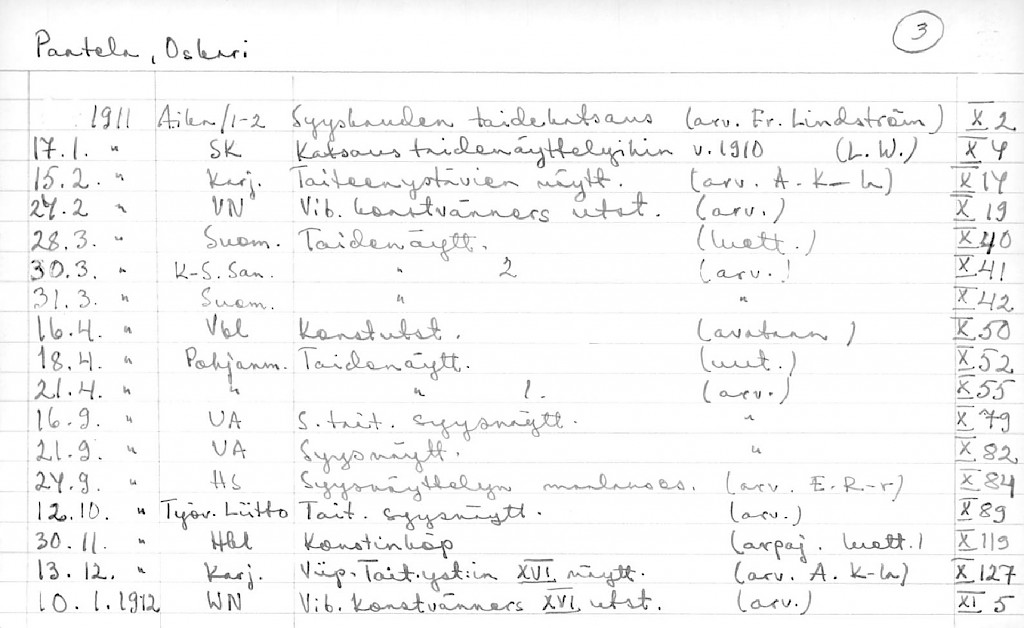 3
Paatela, Oskari
1911 Aika/1-2 Syyskauden taidekatsaus (arv. Fr. Lindström) X 2
17.1. " SK Katsaus taidenäyttelyihin v. 1910 (L.W.) X 4
15.2. " Karj. Taiteenystävien näytt. (arv. A. K-la) X 14
24.2 " VN Vib. konstvänners utst. (arv.) X 19
28.3. " Suom. Taidenäytt. (luett.) X 40
30.3. " K-S. San. " 2 (arv.) X 41
31.3. " Suom. " " X 42
16.4. " Vbl Konstutst. (avataan) X 50
18.4. " Pohjanm. Taidenäytt. (uut.) X 52
21.4. " " " 1. (arv.) X 55
16.9. " UA S. tait. syysnäytt. " X 79
21.9. " UA Syysnäytt. " X 82
24.9. " HS Syysnäyttelyn maalauos. (arv. E.R-r) X 84
12.10. " Työv. Liitto Tait. syysnäytt. (arv.) X 89
30.11. " Hbl Konstinköp (arpaj. luett.) X 119
13.12. " Karj. Viip. Tait.yst:in XVI näytt. (arv. A. K-la) X 127
10.1.1912 WN Vib. Konstvänners XVI utst. (arv.) XI 5